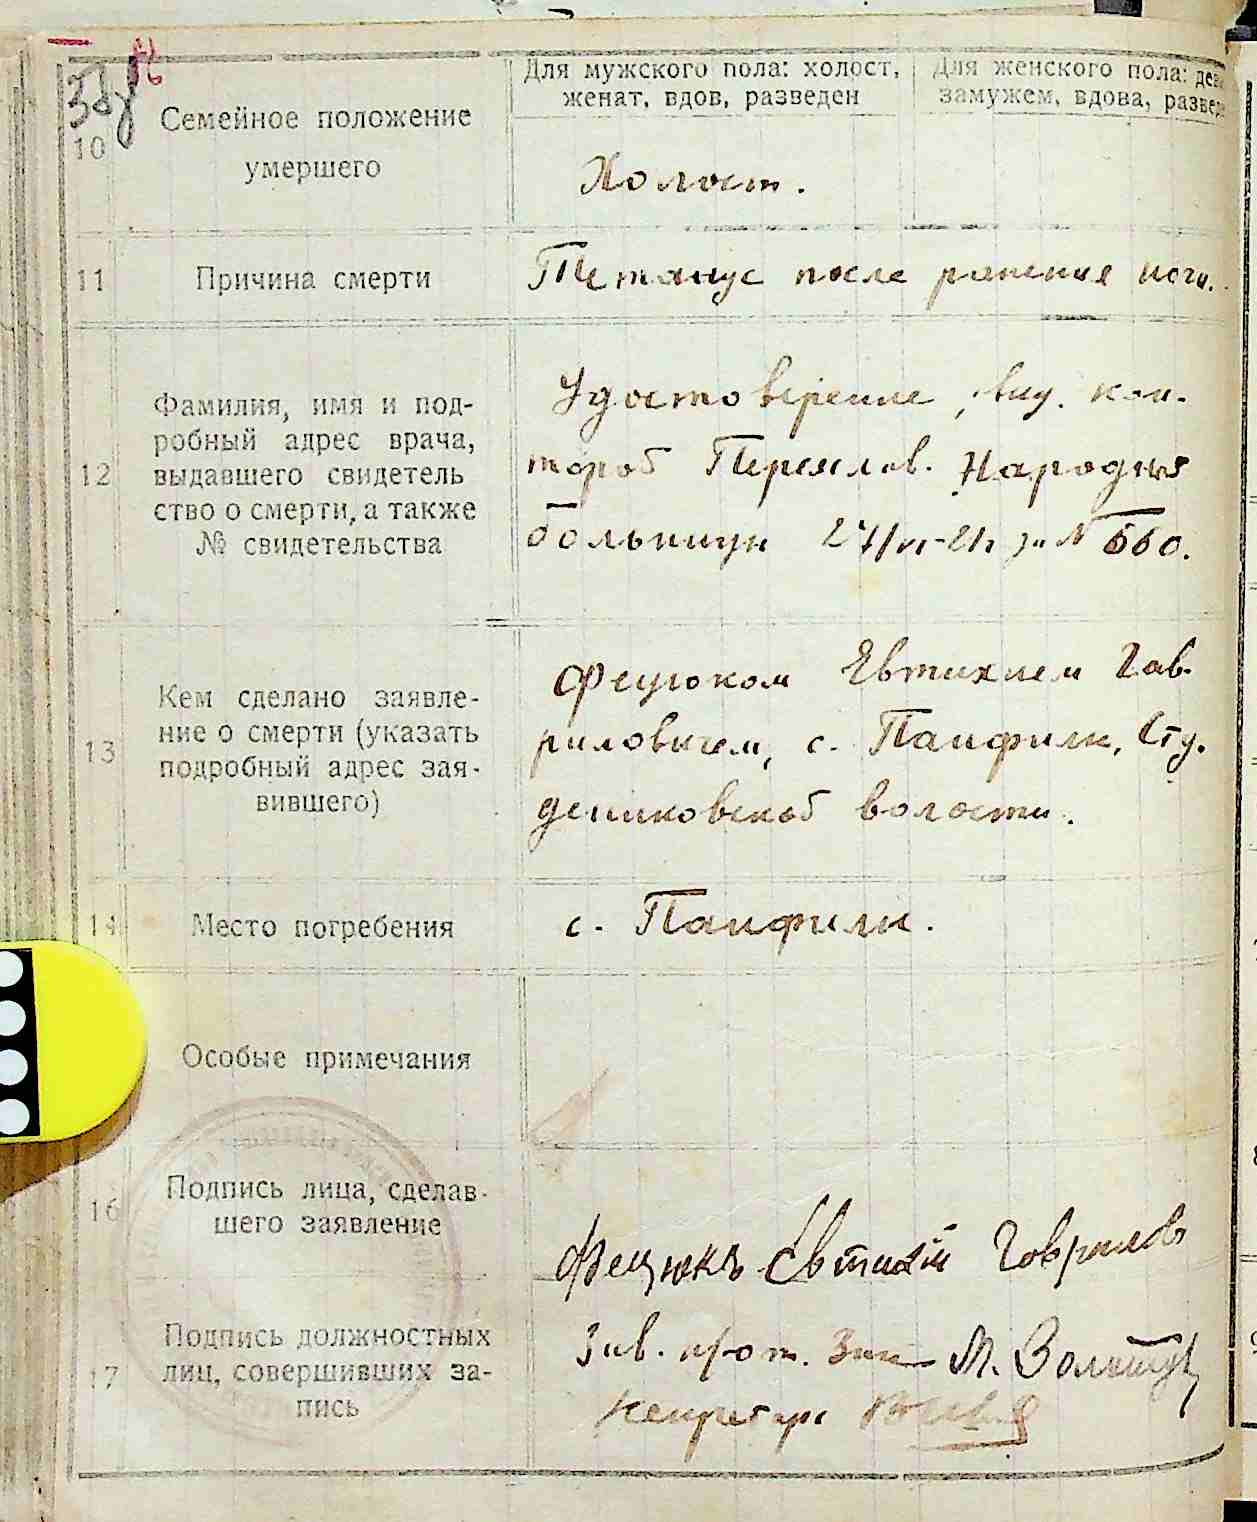 Для мужского пола: холост,
женат, вдов, разведен
Для женского пола:
замужем, вдова,
10
Семейное положение
умершего
Холост.
11
Причина смерти
Тетанус после ранения ноги.
12
Фамилия, имя и под-
робный адрес врача,
выдавшего свидетель
ство о смерти, а также
№ свидетельства
Удостоверение, выд. кон-
торой Переяслов. Народной
больницы 27/VI-21г за № 560.
13
Кем сделано заявле-
ние о смерти (указать
подробный адрес зая-
вившего)
Фецюком Евтихием Гав-
риловичем, с. Панфилы, Сту-
дениковской волости.
14
Место погребения
с. Панфилы.
Особые примечания
16
Подпись лица, сделав-
шего заявление
Фецюкъ Евтихий Говрилов
17
Подпись должностных
лиц, совершивших за-
пись
Зав. М.
Секретарь